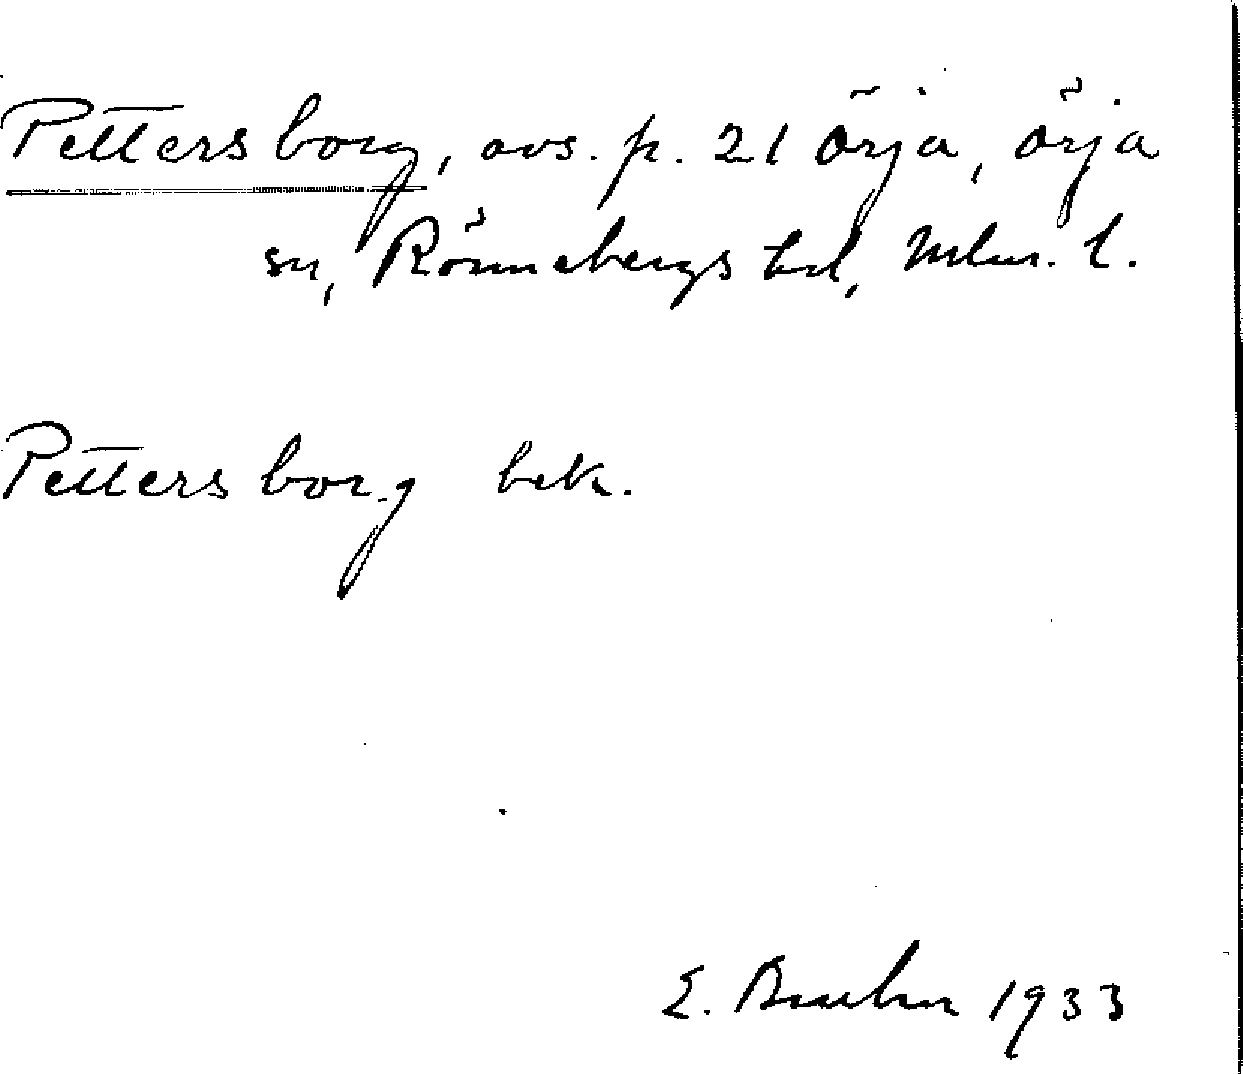 Pettersborg, avs. p. 21 Örja, Örja
sn, Rönnebergs hd, Mlm. l.
Pettersborg bek.
E. Bruhn 1933